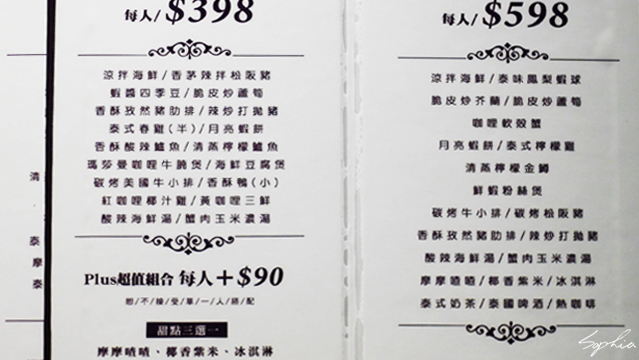 每人/$398
涼拌海鮮/香茅辣拌松阪豬
蝦醬四季豆/脆皮炒蘆筍
香酥孜然豬肋排/辣炒打拋豬
泰式春雞(半)/月亮蝦餅
香酥酸辣鱸魚/清蒸檸檬鱸魚
瑪莎曼咖哩牛腱煲/海鮮豆腐煲
碳烤美國牛小排/香酥鴨(小)
紅咖哩椰汁雞/黃咖哩三鮮
酸辣海鮮湯/蟹肉玉米濃湯
Plus超值組合 每人+$90
恕/不/接/受/單/一/人/搭/配
甜點三選一
摩摩喳喳、椰香紫米、冰淇淋
清
泰
摩
泰
每人/$598
涼拌海鮮/泰味鳳梨蝦球
脆皮炒芥蘭/脆皮炒蘆筍
咖哩軟殼蟹
月亮蝦餅/泰式檸檬雞
清蒸檸檬金鱒
鮮蝦粉絲煲
碳烤牛小排/碳烤松阪豬
香酥孜然豬肋排/辣炒打拋豬
酸辣海鮮湯/蟹肉玉米濃湯
摩摩喳喳/椰香紫米/冰淇淋
泰式奶茶/泰國啤酒/熱咖啡
Sophia